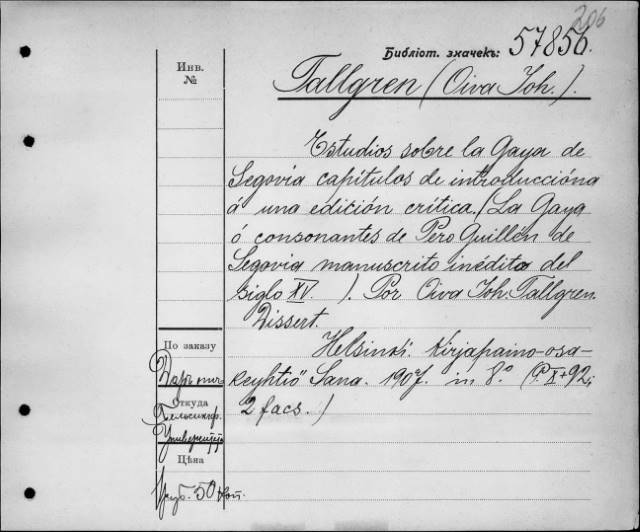 206
Библіот. значекъ: 57856.
Инв.
№
Tallgren (Oiva Joh.).
Estudios sobre la Gaya de
Segovia capítulos de introduccióna
á una edición crítica. (La Gaya
ó consonantes de Pero Guillén de
Segovia manuscrito inédito del
siglo XV. ). Por Oiva Joh. Tallgren.
Dissert.
Helsinki. Kirjapaino-osa-
keyhtiö Sana. 1907. in 8.° (P. X+92;
2 facs.)
По заказу
Откуда
Гельсингф.
Университетъ
Цѣна
руб. 50 коп.